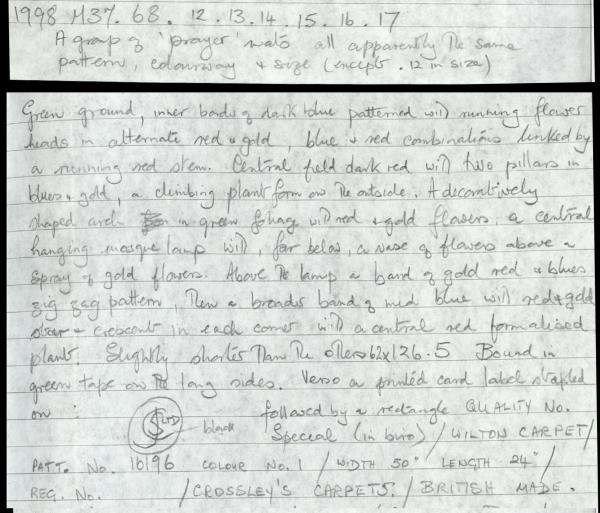 1998 H37. 68. 12. 13. 14. 15. 16. 17
A group of 'prayer' mats all apparently the same
pattern, colourway & size (except .12 in size)
Green ground, inner border of dark blue patterned with running flower
heads in alternate red & gold, blue & red combinations linked by
a running red stem. Central field dark red with two pillars in
blues & gold, a climbing plant form on the outside. A decoratively
shaped arch in green foliage with red & gold flowers, a central
hanging mosque lamp with, far below, a vase of flowers above a
spray of gold flowers. Above the lamp a band of gold red & blues
zig zag pattern, then a broader band of mid blue with red & gold
star & crescent in each corner with a central red formalised
plant. Slightly shorter than the others 62x126.5 Bound in
green tape on the long sides. Verso a printed card label stapled
on : $ LTD black followed by a rectangle QUALITY No.
Special (in biro) / WILTON CARPET /
PATT. No. 10196 COLOUR No. 1 / WIDTH 50" LENGTH 24" /
REG. No. / CROSSLEY'S CARPETS. / BRITISH MADE.